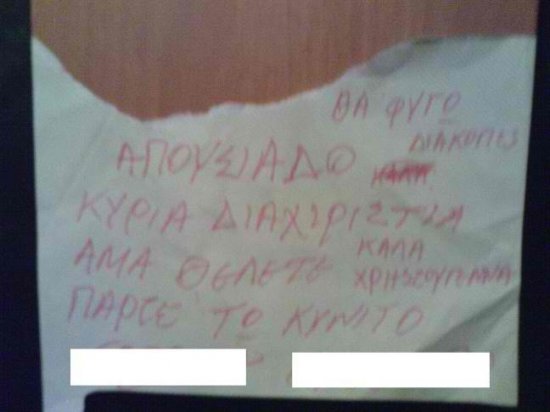 ΘΑ ΦΥΓΟ
ΔΙΑΚΟΠΕΣ
ΑΠΟΥΣΙΑΔΩ
ΚΥΡΙΑ ΔΙΑΧΙΡΙΣΤΙΑ
ΑΜΑ ΘΕΛΕΤΕ
ΚΑΛΑ
ΧΡΗΣΟΥΓΕΝΝΑ
ΠΑΡΤΕ ΤΟ ΚΥΝΙΤΟ